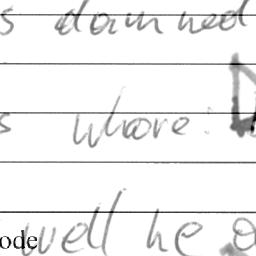 s damned
s whore: D
ode well he